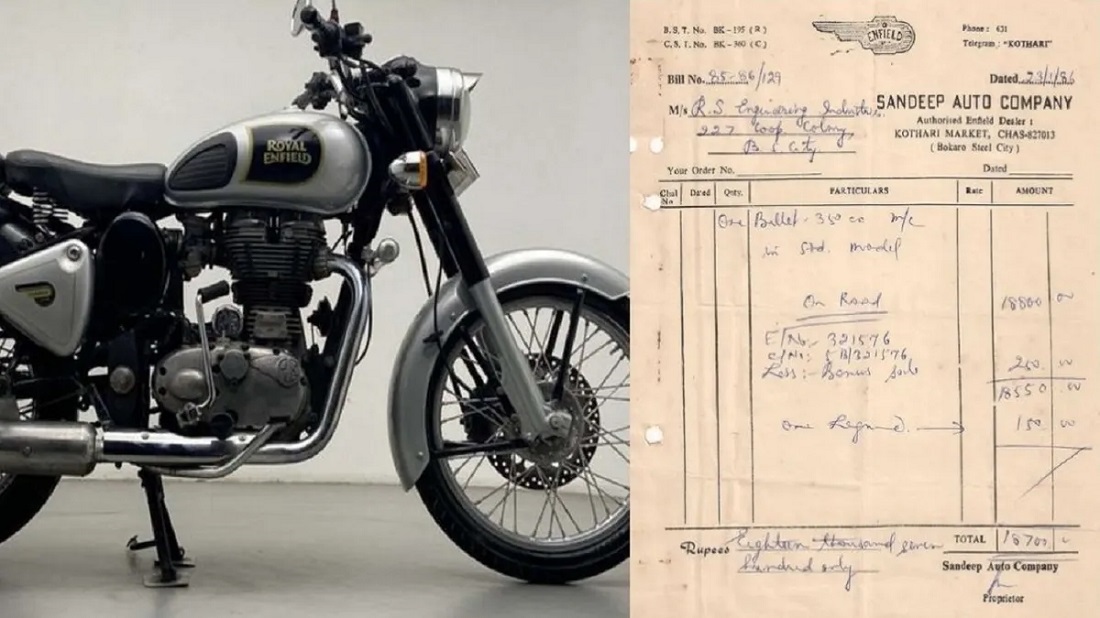 ROYAL
ENFIELD
B.S.T. No. BK-195 (R)
C.S.T. No. BK-360 (C)
ENFIELD
Phone: 631
Telegram: "KOTHARI"
Bill No. 85-86/129
Dated 23/1/86
M/s R.S Engineering Industries
227 Coop. Colony,
B. S. City
SANDEEP AUTO COMPANY
Authorised Enfield Dealer :
KOTHARI MARKET, CHAS-827013
( Bokaro Steel City )
Your Order No.
Dated
Chal No Dated Qnty. PARTICULARS Rate AMOUNT
One Bullet-350 cc m/c
in Std. model
On Road 18800 00
E/No:- 321576
C/No: 5B/321576
Less:- Bonus Sale 250.00
18550.00
One 150 00
Rupees Eighteen thousand seven
hundred only
TOTAL 18700
Sandeep Auto Company
Proprietor